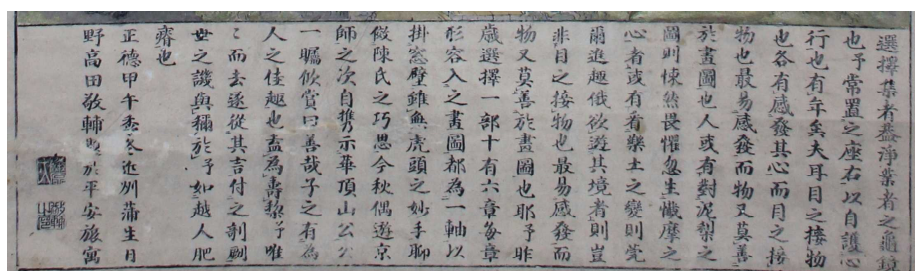 選擇集者蓋淨業者之龜鏡
也予常置之座右以自護心
行也有年矣夫耳目之接物
也各有感發其心而目之接
物也最易感發而物又莫善
於畫圖也人或有對泥梨之
圖則悚然畏懼忽生懺摩之
心者或有看樂土之變則莞
爾進趣俄欲遊其境者則豈
非目之接物也最易感發而
物又莫善於畫圖也耶予昨
歲選擇一部十有六章每章
形容入之畫圖都為一軸以
掛窓壁雖無虎頭之妙手聊
假陳氏之巧思今秋偶遊京
師之次自携示華頂山公公
一矚欣賞曰善哉子之有為
人之佳趣也盍為壽黎予唯
〻而去遂從其言付之剞劂
世之譏與獮於予如越人肥
瘠也
正德甲午季冬近州蒲生日
野高田敬輔題於平安旅寓